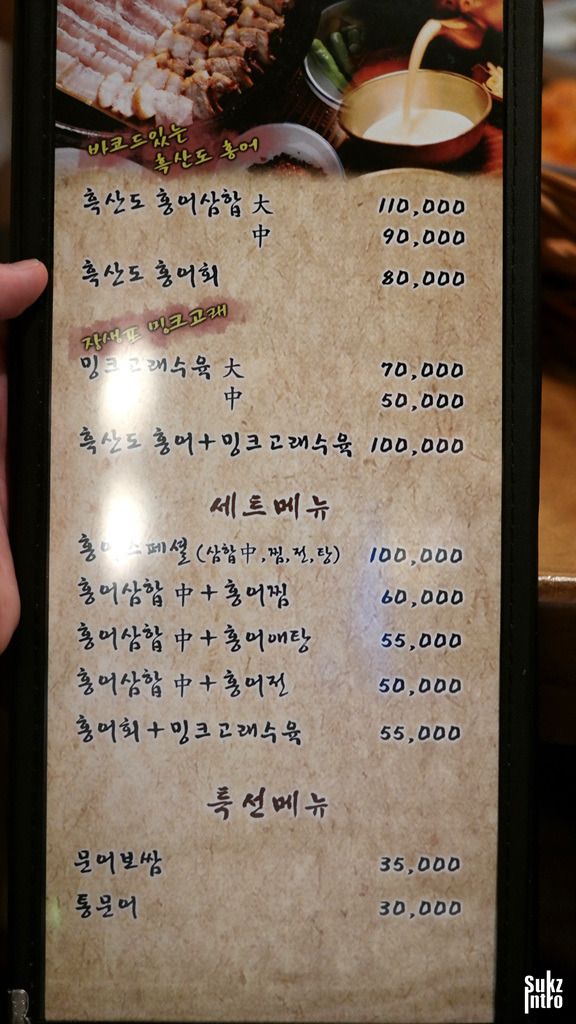 바코드있는
흑산도 홍어
흑산도 홍어삼합 大 110,000
中 90,000
흑산도 홍어회 80,000
장생포 밍크고래
밍크고래수육 大 70,000
中 50,000
흑산도 홍어+밍크고래수육 100,000
세트메뉴
홍어스페셜 (삼합中,찜,전,탕) 100,000
홍어삼합 中+홍어찜 60,000
홍어삼합 中+홍어애탕 55,000
홍어삼합 中+홍어전 50,000
홍어회+밍크고래수육 55,000
특선메뉴
문어보쌈 35,000
통문어 30,000
Sukz
Intro